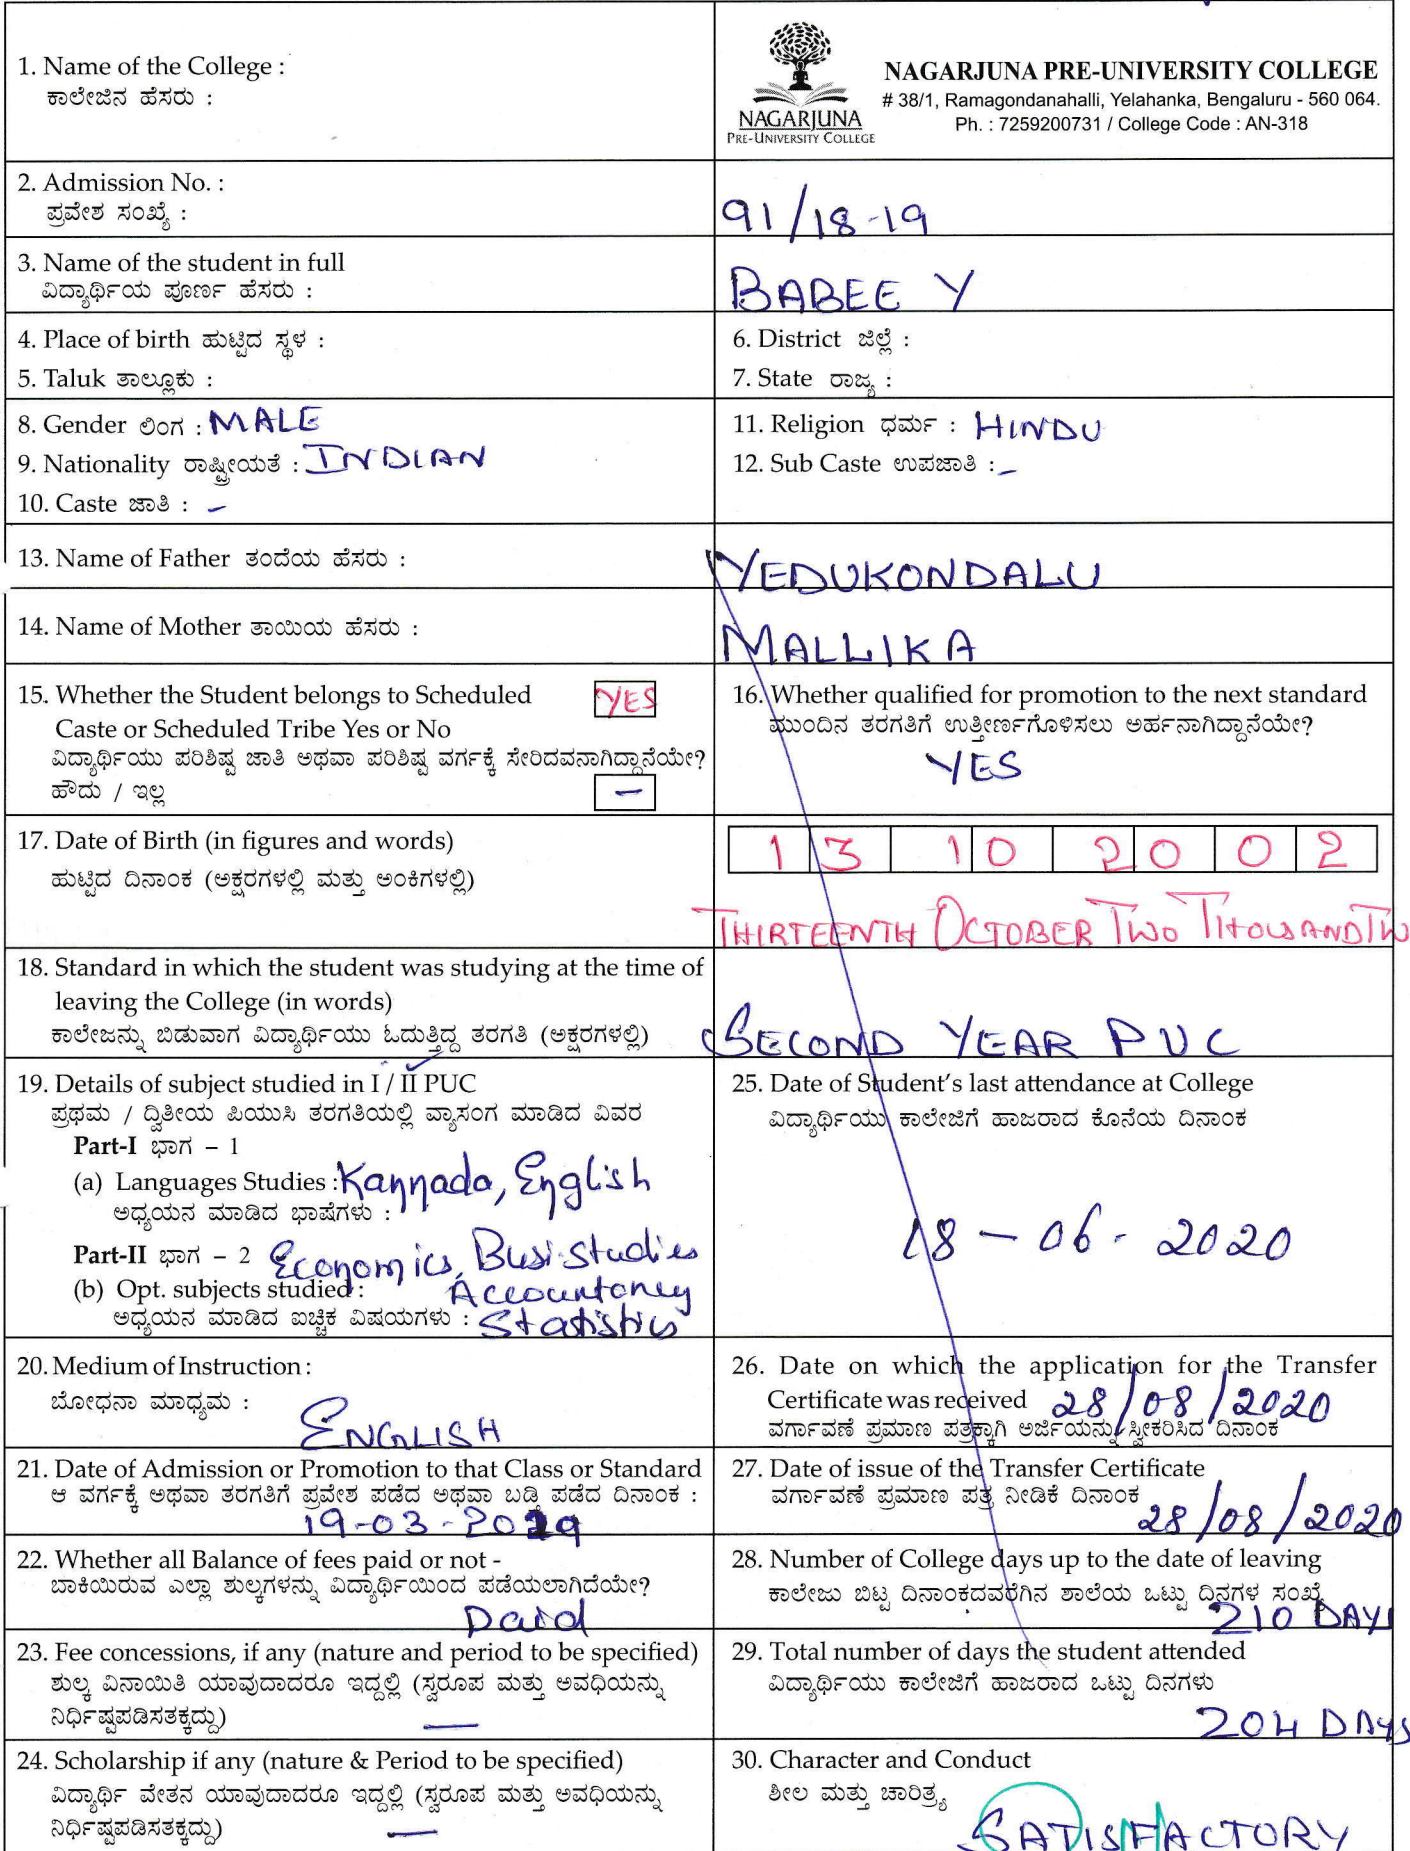 1. Name of the College :
ಕಾಲೇಜಿನ ಹೆಸರು :
NAGARJUNA
PRE-UNIVERSITY COLLEGE
NAGARJUNA PRE-UNIVERSITY COLLEGE
# 38/1, Ramagondanahalli, Yelahanka, Bengaluru - 560 064.
Ph. : 7259200731 / College Code : AN-318
2. Admission No. :
ಪ್ರವೇಶ ಸಂಖ್ಯೆ :
91/18-19
3. Name of the student in full
ವಿದ್ಯಾರ್ಥಿಯ ಪೂರ್ಣ ಹೆಸರು :
BABEE Y
4. Place of birth ಹುಟ್ಟಿದ ಸ್ಥಳ :
5. Taluk ತಾಲ್ಲೂಕು :
6. District ಜಿಲ್ಲೆ :
7. State ರಾಜ್ಯ :
8. Gender ಲಿಂಗ : MALE
9. Nationality ರಾಷ್ಟ್ರೀಯತೆ : INDIAN
10. Caste ಜಾತಿ : -
11. Religion ಧರ್ಮ : HINDU
12. Sub Caste ಉಪಜಾತಿ : -
13. Name of Father ತಂದೆಯ ಹೆಸರು :
YEDUKONDALU
14. Name of Mother ತಾಯಿಯ ಹೆಸರು :
MALLIKA
15. Whether the Student belongs to Scheduled
Caste or Scheduled Tribe Yes or No
YES
ವಿದ್ಯಾರ್ಥಿಯು ಪರಿಶಿಷ್ಟ ಜಾತಿ ಅಥವಾ ಪರಿಶಿಷ್ಟ ವರ್ಗಕ್ಕೆ ಸೇರಿದವನಾಗಿದ್ದಾನೆಯೇ?
ಹೌದು / ಇಲ್ಲ
-
16. Whether qualified for promotion to the next standard
ಮುಂದಿನ ತರಗತಿಗೆ ಉತ್ತೀರ್ಣಗೊಳಿಸಲು ಅರ್ಹನಾಗಿದ್ದಾನೆಯೇ?
YES
17. Date of Birth (in figures and words)
ಹುಟ್ಟಿದ ದಿನಾಂಕ (ಅಕ್ಷರಗಳಲ್ಲಿ ಮತ್ತು ಅಂಕಿಗಳಲ್ಲಿ)
1 3 1 0 2 0 0 2
THIRTEENTH OCTOBER TWO THOUSAND TW
18. Standard in which the student was studying at the time of
leaving the College (in words)
ಕಾಲೇಜನ್ನು ಬಿಡುವಾಗ ವಿದ್ಯಾರ್ಥಿಯು ಓದುತ್ತಿದ್ದ ತರಗತಿ (ಅಕ್ಷರಗಳಲ್ಲಿ)
SECOND YEAR PUC
19. Details of subject studied in I / II PUC
ಪ್ರಥಮ / ದ್ವಿತೀಯ ಪಿಯುಸಿ ತರಗತಿಯಲ್ಲಿ ವ್ಯಾಸಂಗ ಮಾಡಿದ ವಿವರ
Part-I ಭಾಗ – 1
(a) Languages Studies : Kannada, English
ಅಧ್ಯಯನ ಮಾಡಿದ ಭಾಷೆಗಳು :
Part-II ಭಾಗ – 2 Economics, Busi. Studies
(b) Opt. subjects studied : Accountancy
ಅಧ್ಯಯನ ಮಾಡಿದ ಐಚ್ಛಿಕ ವಿಷಯಗಳು : Statistics
25. Date of Student's last attendance at College
ವಿದ್ಯಾರ್ಥಿಯು ಕಾಲೇಜಿಗೆ ಹಾಜರಾದ ಕೊನೆಯ ದಿನಾಂಕ
18-06-2020
20. Medium of Instruction :
ಬೋಧನಾ ಮಾಧ್ಯಮ :
ENGLISH
26. Date on which the application for the Transfer
Certificate was received 28/08/2020
ವರ್ಗಾವಣೆ ಪ್ರಮಾಣ ಪತ್ರಕ್ಕಾಗಿ ಅರ್ಜಿಯನ್ನು ಸ್ವೀಕರಿಸಿದ ದಿನಾಂಕ
21. Date of Admission or Promotion to that Class or Standard
ಆ ವರ್ಗಕ್ಕೆ ಅಥವಾ ತರಗತಿಗೆ ಪ್ರವೇಶ ಪಡೆದ ಅಥವಾ ಬಡ್ತಿ ಪಡೆದ ದಿನಾಂಕ :
19-03-2019
27. Date of issue of the Transfer Certificate
ವರ್ಗಾವಣೆ ಪ್ರಮಾಣ ಪತ್ರ ನೀಡಿಕೆ ದಿನಾಂಕ
28/08/2020
22. Whether all Balance of fees paid or not -
ಬಾಕಿಯಿರುವ ಎಲ್ಲಾ ಶುಲ್ಕಗಳನ್ನು ವಿದ್ಯಾರ್ಥಿಯಿಂದ ಪಡೆಯಲಾಗಿದೆಯೇ?
Paid
28. Number of College days up to the date of leaving
ಕಾಲೇಜು ಬಿಟ್ಟ ದಿನಾಂಕದವರೆಗಿನ ಶಾಲೆಯ ಒಟ್ಟು ದಿನಗಳ ಸಂಖ್ಯೆ
210 DAYS
23. Fee concessions, if any (nature and period to be specified)
ಶುಲ್ಕ ವಿನಾಯಿತಿ ಯಾವುದಾದರೂ ಇದ್ದಲ್ಲಿ (ಸ್ವರೂಪ ಮತ್ತು ಅವಧಿಯನ್ನು
ನಿರ್ಧಿಷ್ಟಪಡಿಸತಕ್ಕದ್ದು) —
29. Total number of days the student attended
ವಿದ್ಯಾರ್ಥಿಯು ಕಾಲೇಜಿಗೆ ಹಾಜರಾದ ಒಟ್ಟು ದಿನಗಳು
204 DAYS
24. Scholarship if any (nature & Period to be specified)
ವಿದ್ಯಾರ್ಥಿ ವೇತನ ಯಾವುದಾದರೂ ಇದ್ದಲ್ಲಿ (ಸ್ವರೂಪ ಮತ್ತು ಅವಧಿಯನ್ನು
ನಿರ್ಧಿಷ್ಟಪಡಿಸತಕ್ಕದ್ದು) —
30. Character and Conduct
ಶೀಲ ಮತ್ತು ಚಾರಿತ್ರ್ಯ
SATISFACTORY